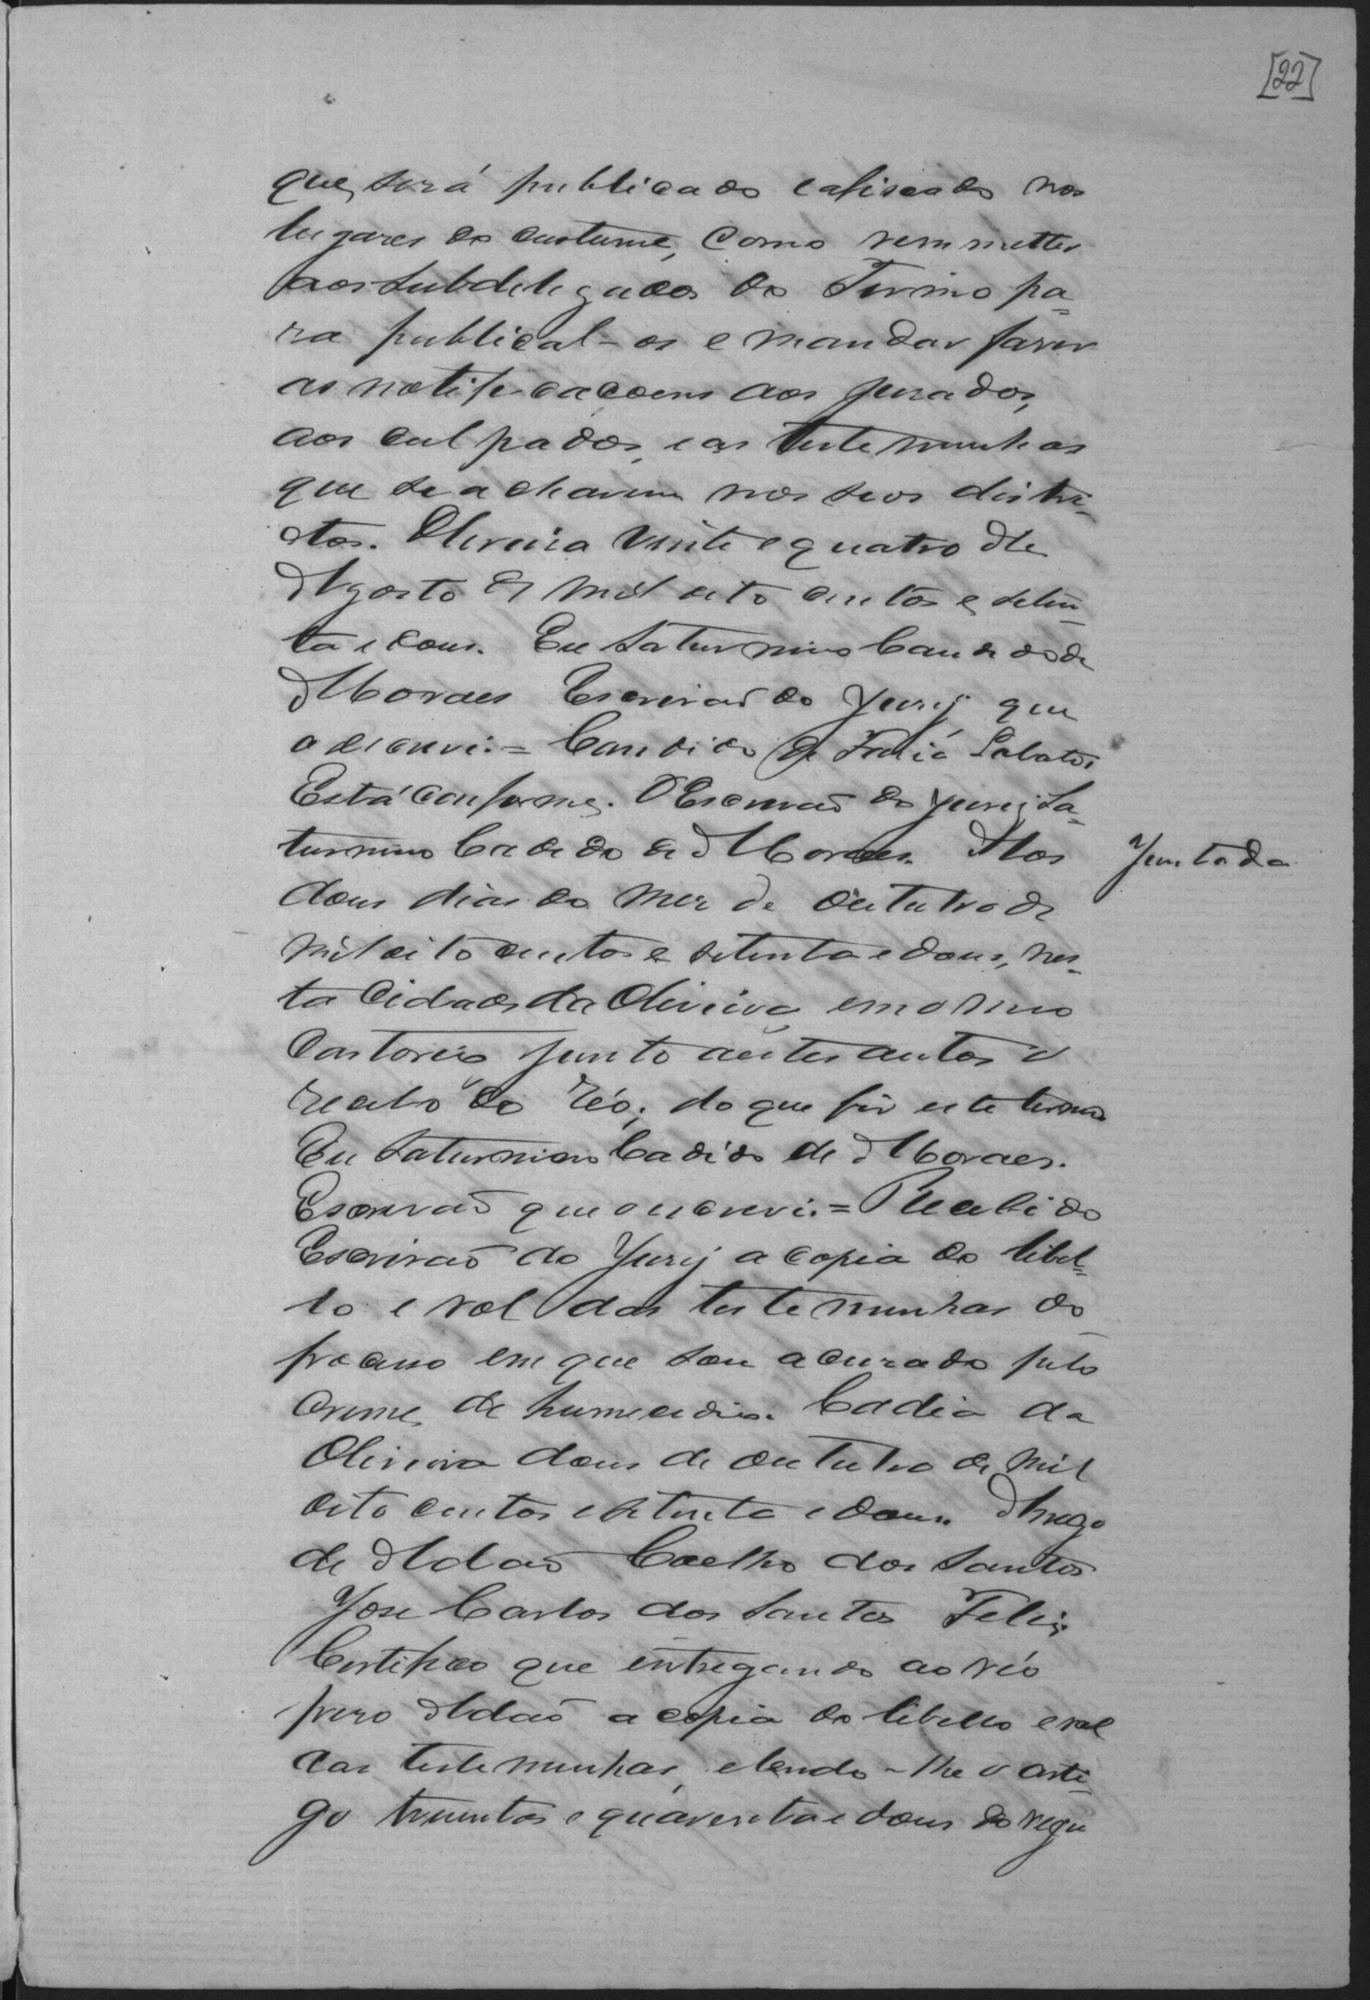 [22]
que será publicado e afixado nos
lugares do custume, como remmetter
aos subdelegados do Termo pa=
ra publical-os e mandar fazer
as notificaçoens aos jurados,
aos culpados, e as testemunhas
que se acharem nos seos distri-
ctos. Oliveira vinte e quatro de
Agosto de mil oito centos e seten=
ta e dous. Eu Saturnino Candido de
Moraes Escrivaõ do Jury que
a escrevi.= Candido de Faria Lobato.
Está conforme. O Escrivaõ do jury Sa=
turnino Cadido de Moraes. Aos
Juntada
dous dias do mez de Outubro de
mil oito centos e setenta e dous, nes-
ta Cidade da Oliveira em o meo
Cartorio junto a estes autos o
recibo do réo; do que fiz este termo
Eu Saturnino Cadido de Moraes.
Escrivaõ que o escrevi.= Recebi do
Escrivaõ do Jury a copia do libel=
lo e rol das testemunhas do
processo em que sou acusado pelo
crime de humecidio. Cadia da
Oliveira dous de outubro de mil
oito centos e setenta e dous. A rogo
de Adaõ Coelho dos Santos
Jose Carlos dos Santos Felix
Certifico que entregando ao réo
prezo Adaõ a copia do libello e rol
das testemunhas, e lendo-lhe o arti-
go trezentos e quarenta e dous do regu